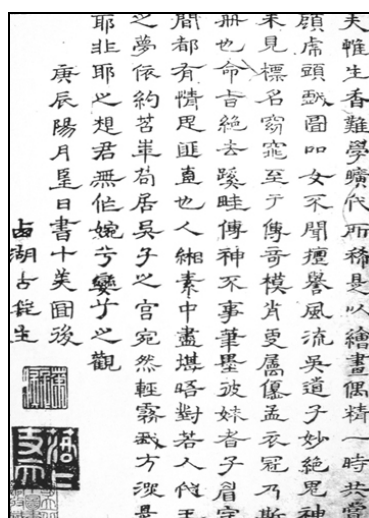 夫帷生香難學曠代所稀是以繪畫偶精一時共賞
顧虎頭戲圖四女不聞擅譽風流吳道子妙絕鬼神
未見標名窈窕至于傳奇模肖更屬優孟衣冠乃斯
冊也命旨絕去蹊畦傳神不事筆墨彼姝者子眉宇
間都有情思匪直也人緗素中盡堪晤對若人何王
之夢依約苕華苟居吳子之宮宛然輕霧方深是
耶非耶之想君無作婉兮孌兮之觀
庚辰陽月望日書十美圖後
湖古生